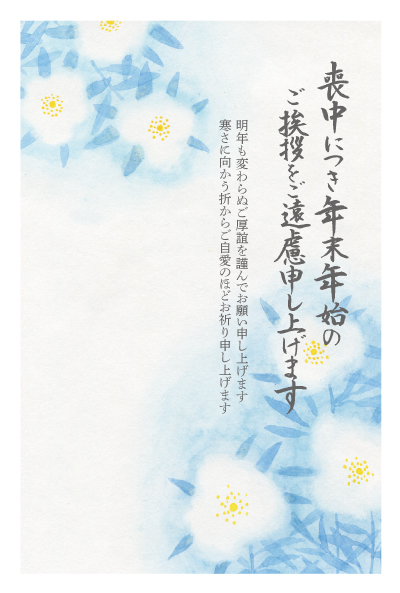 喪中につき年末年始の
ご挨拶をご遠慮申し上げます
明年も変わらぬご厚誼を謹んでお願い申し上げます
寒さに向かう折からご自愛のほどお祈り申し上げます